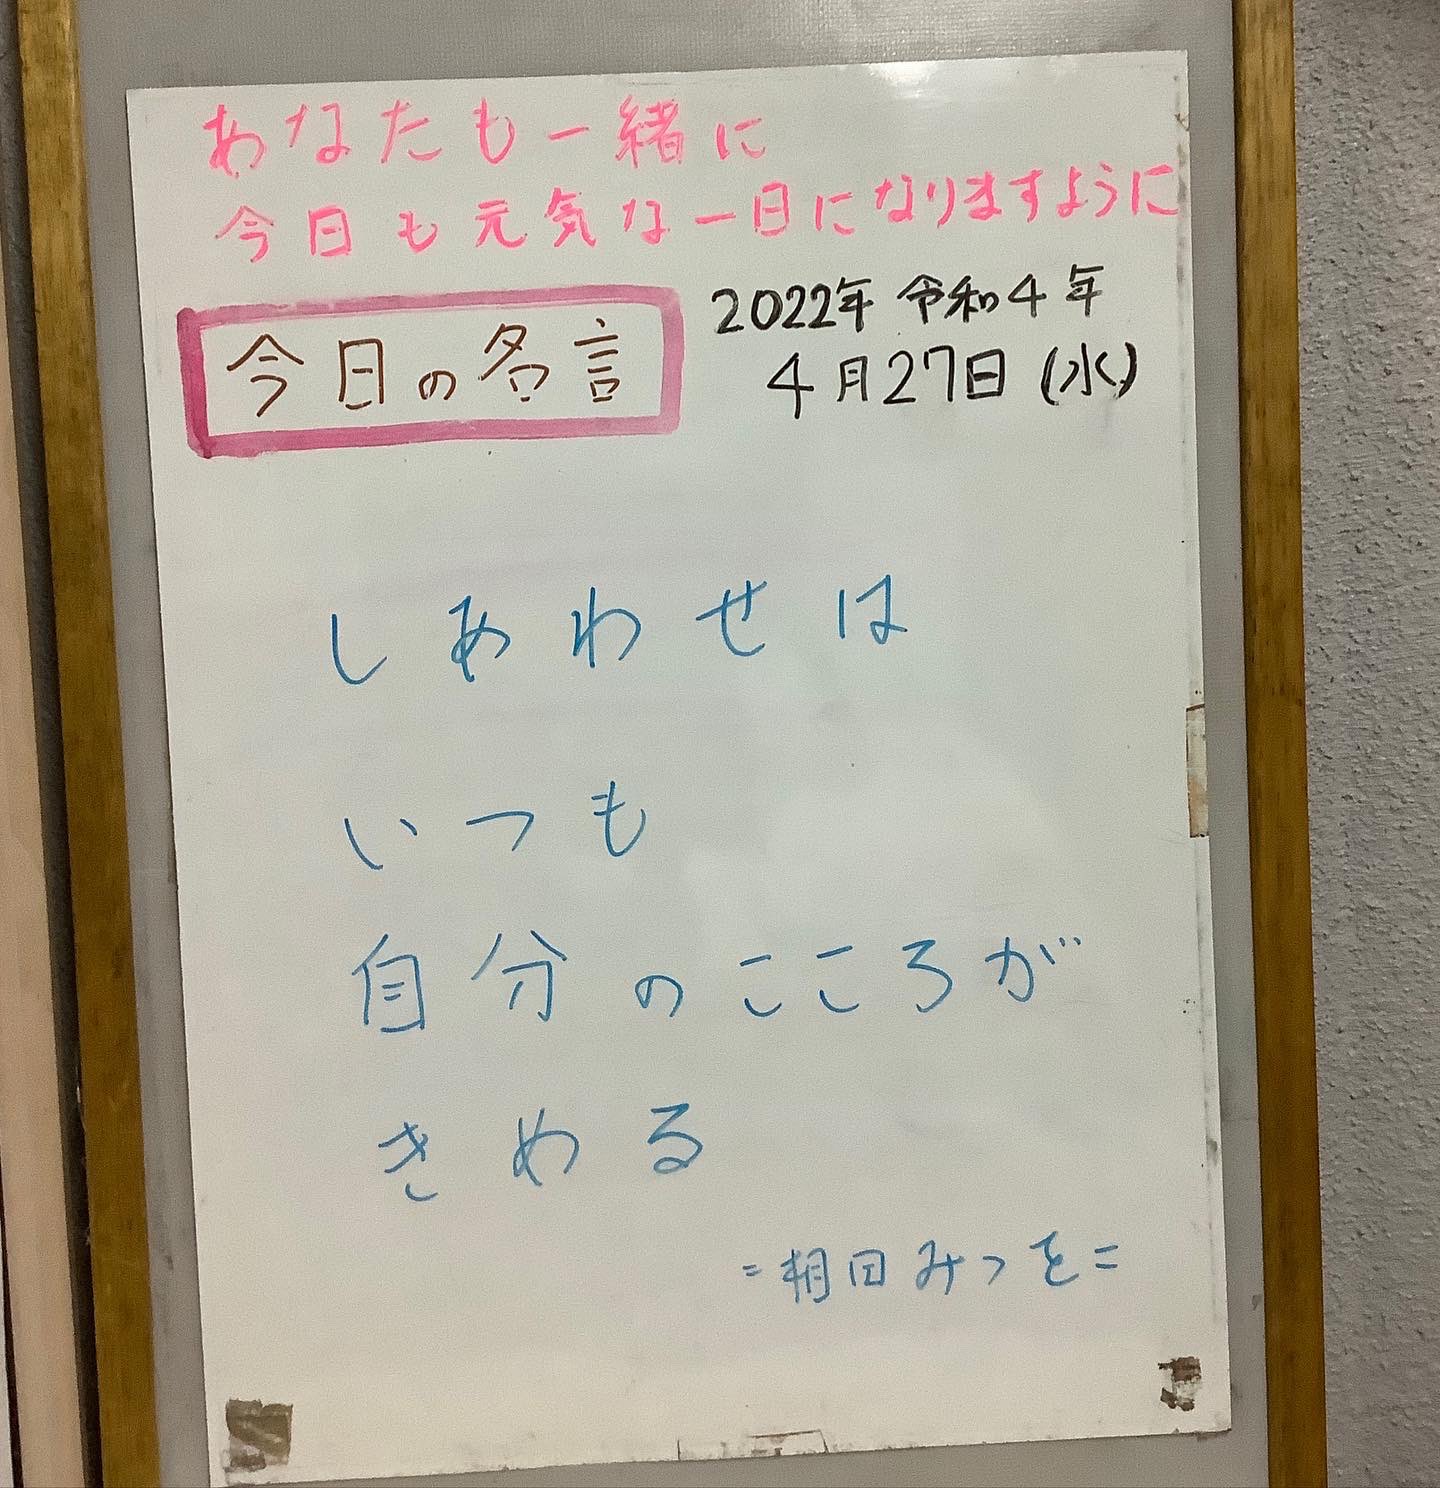 あなたも一緒に
今日も元気な一日になりますように
今日の名言
2022年 令和4年
4月27日(水)
しあわせは
いつも
自分のこころが
きめる
=相田みつを=